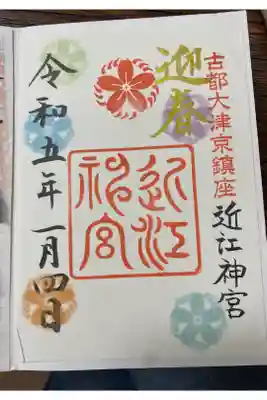 古都大津京鎮座
近江神宮
迎春
近江
神宮
令和五年一月四日